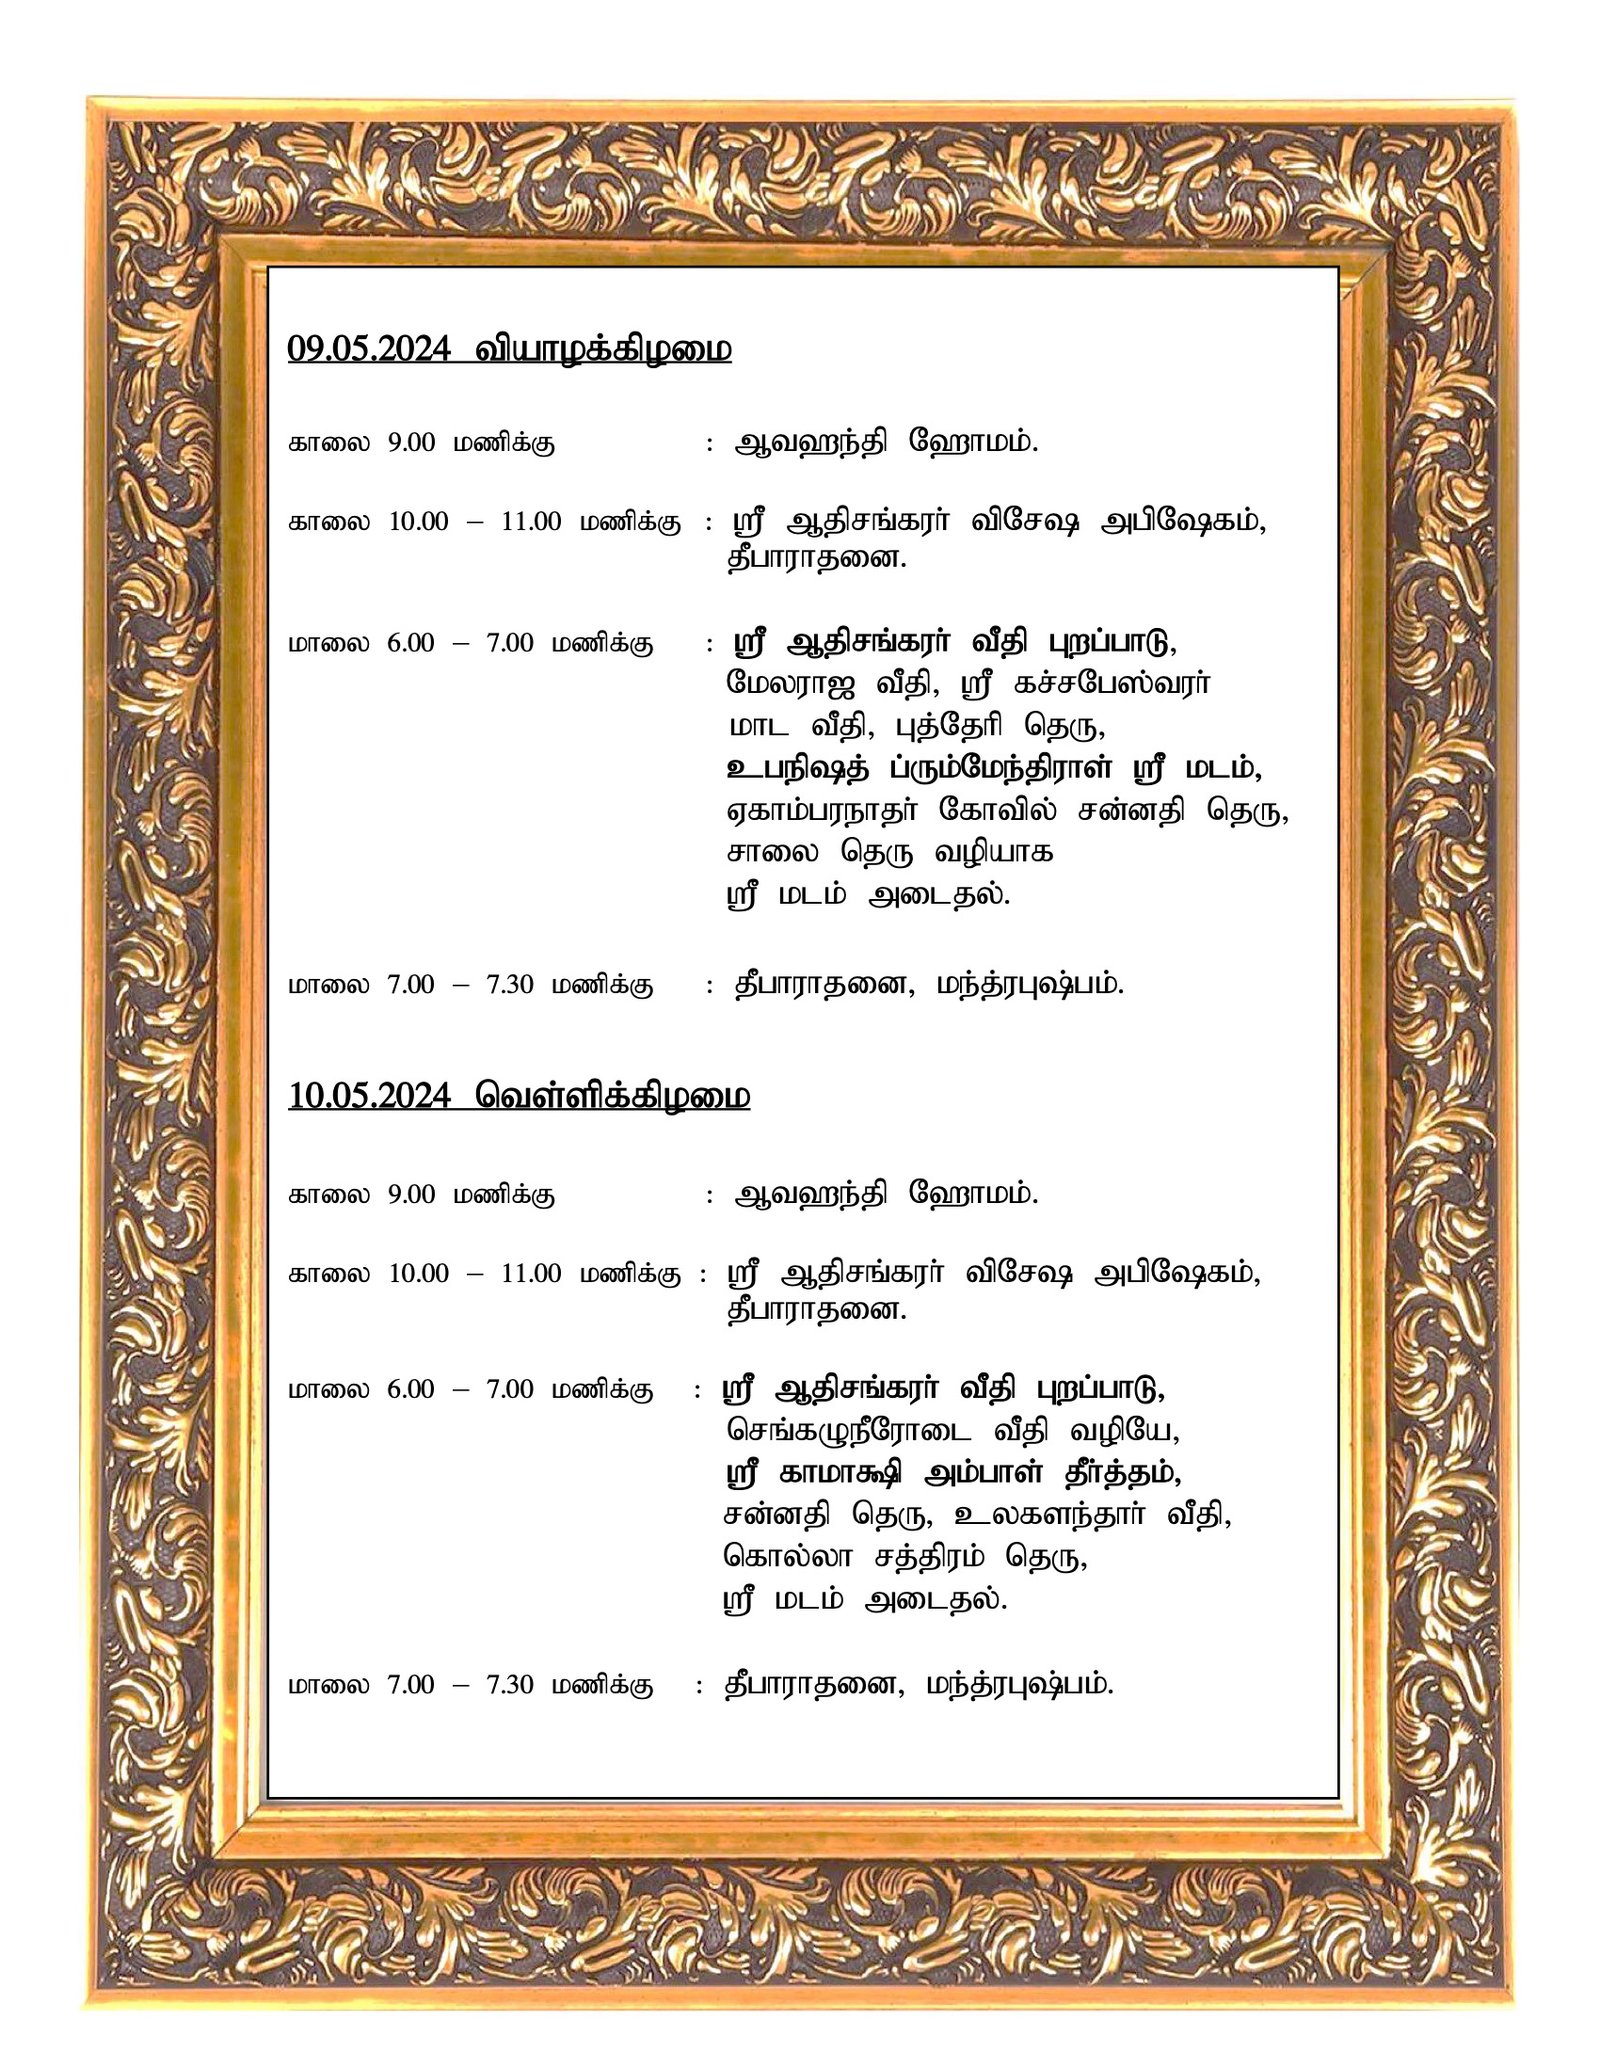 09.05.2024 வியாழக்கிழமை
காலை 9.00 மணிக்கு : ஆவஹந்தி ஹோமம்.
காலை 10.00 – 11.00 மணிக்கு : ஸ்ரீ ஆதிசங்கரர் விசேஷ அபிஷேகம்,
தீபாராதனை.
மாலை 6.00 – 7.00 மணிக்கு : ஸ்ரீ ஆதிசங்கரர் வீதி புறப்பாடு,
மேலராஜ வீதி, ஸ்ரீ கச்சபேஸ்வரர்
மாட வீதி, புத்தேரி தெரு,
உபநிஷத் ப்ரும்மேந்திராள் ஸ்ரீ மடம்,
ஏகாம்பரநாதர் கோவில் சன்னதி தெரு,
சாலை தெரு வழியாக
ஸ்ரீ மடம் அடைதல்.
மாலை 7.00 – 7.30 மணிக்கு : தீபாராதனை, மந்த்ரபுஷ்பம்.
10.05.2024 வெள்ளிக்கிழமை
காலை 9.00 மணிக்கு : ஆவஹந்தி ஹோமம்.
காலை 10.00 – 11.00 மணிக்கு : ஸ்ரீ ஆதிசங்கரர் விசேஷ அபிஷேகம்,
தீபாராதனை.
மாலை 6.00 – 7.00 மணிக்கு : ஸ்ரீ ஆதிசங்கரர் வீதி புறப்பாடு,
செங்கழுநீரோடை வீதி வழியே,
ஸ்ரீ காமாக்ஷி அம்பாள் தீர்த்தம்,
சன்னதி தெரு, உலகளந்தார் வீதி,
கொல்லா சத்திரம் தெரு,
ஸ்ரீ மடம் அடைதல்.
மாலை 7.00 – 7.30 மணிக்கு : தீபாராதனை, மந்த்ரபுஷ்பம்.